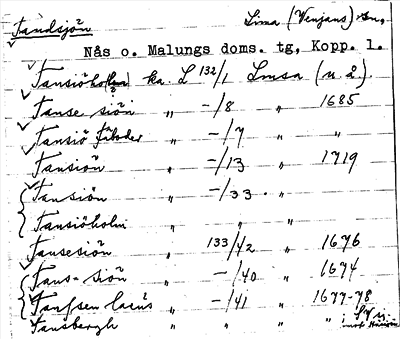 Tandsjön Lima (Venjans) sn,
Nås o. Malungs doms. tg, Kopp. l.
Tansiöho ka. L 132/1 Lmsa (u å.).
Tanse siön " -/8 " 1685
Tansiö fäboder " -/7 " "
Tansiön " -/13 " 1719
Tansiön " -/33 . "
Tansiöholm " " "
Tansesiön 133/42 " 1676
Tans-siön " -/40 " 1674
Tansen lacus " -/41 " 1677-78
Tansbergh " " " "